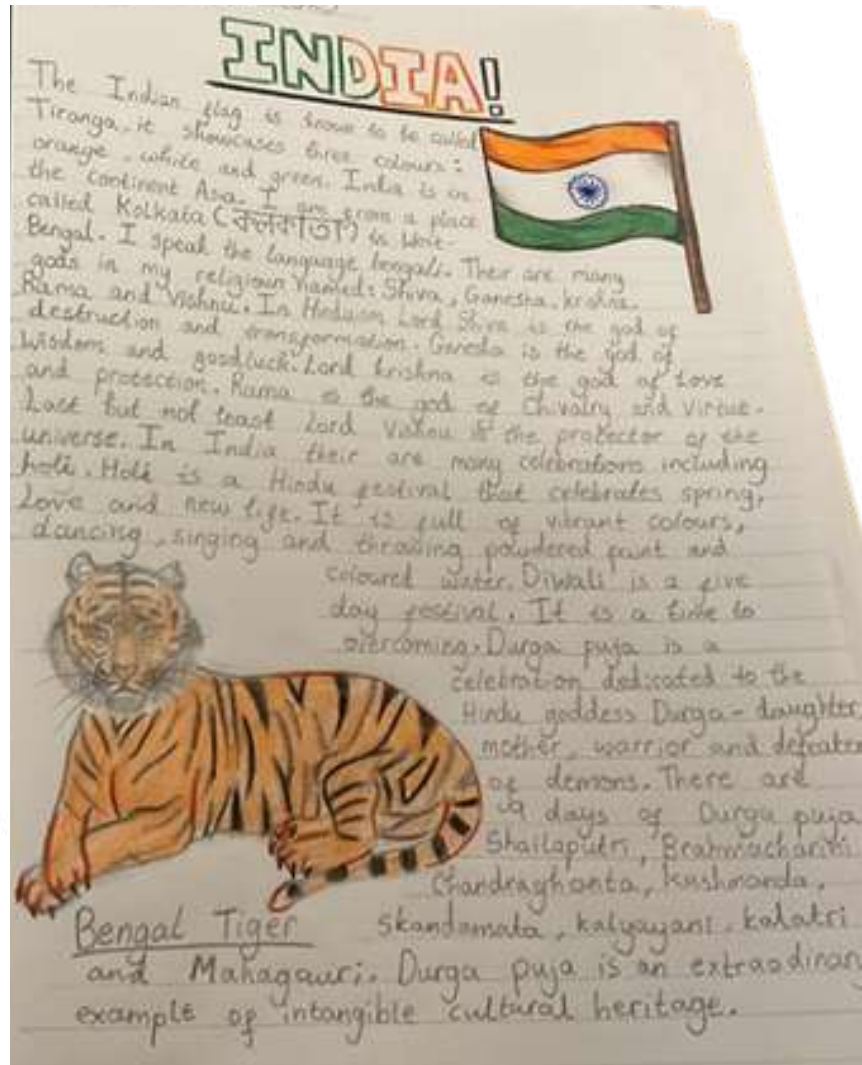 INDIA!
The Indian flag is known to be called
Tiranga. it showcases three colours:
orange, white and green. India is in
the continent Asia. I am from a place
called Kolkata (কলকাতা) in West-
Bengal. I speak the language bengali. Their are many
gods in my religion named: Shiva, Ganesha, krishna,
Rama and Vishnu. In Hinduism Lord Shiva is the god of
destruction and transformation. Ganesha is the god of
Wisdom and goodluck. Lord krishna is the god of Love
and protection. Rama is the god of Chivalry and Virtue.
Last but not least Lord Vishnu is the protector of the
universe. In India their are many celebrations including
holi. Holi is a Hindu festival that celebrates spring,
Love and new life. It is full of vibrant colours,
dancing, singing and throwing powdered paint and
coloured water. Diwali is a five
day festival. It is a time to
overcoming. Durga puja is a
celebration dedicated to the
Hindu goddess Durga - daughter,
mother, warrior and defeater
of demons. There are
9 days of Durga puja
Shailaputri, Brahmacharini
Chandraghanta, kushmanda,
Bengal Tiger
skandamata, kalyayani, kalatri
and Mahagauri. Durga puja is an extraodinary
example of intangible cultural heritage.